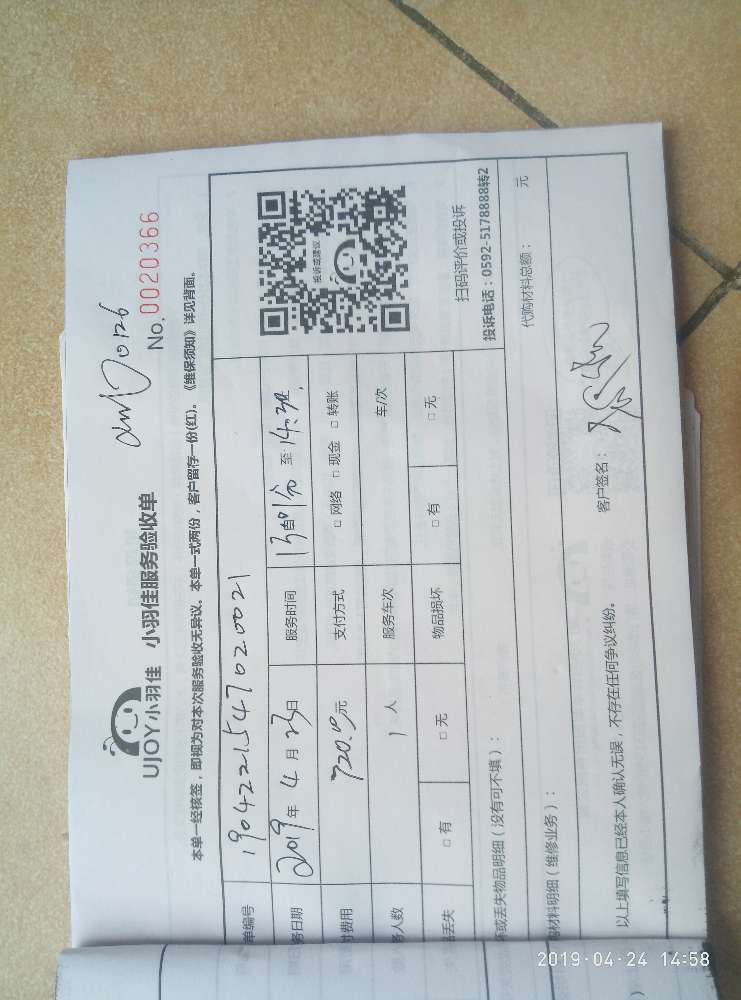 UJOY小羽佳 小羽佳服务验收单
No. 0020366
本单一经核签，即视为对本次服务验收无异议。本单一式两份，客户留存一份(红)。《维保须知》详见背面。
单编号 1904221547020021
务日期 2019年 4月 23日 服务时间 至 14:30
费用 元 支付方式 □ 网络 □ 现金 □ 转账
人数 1 人 服务车次 车/次
丢失 □ 有 □ 无 物品损坏 □ 有 □ 无
投诉或建议
扫码评价或投诉
投诉电话：0592-5178888转2
坏或丢失物品明细（没有可不填）：
材料明细（维修业务）： 代购材料总额： 元
以上填写信息已经本人确认无误，不存在任何争议纠纷。 客户签名：
2019-04-24 14:58